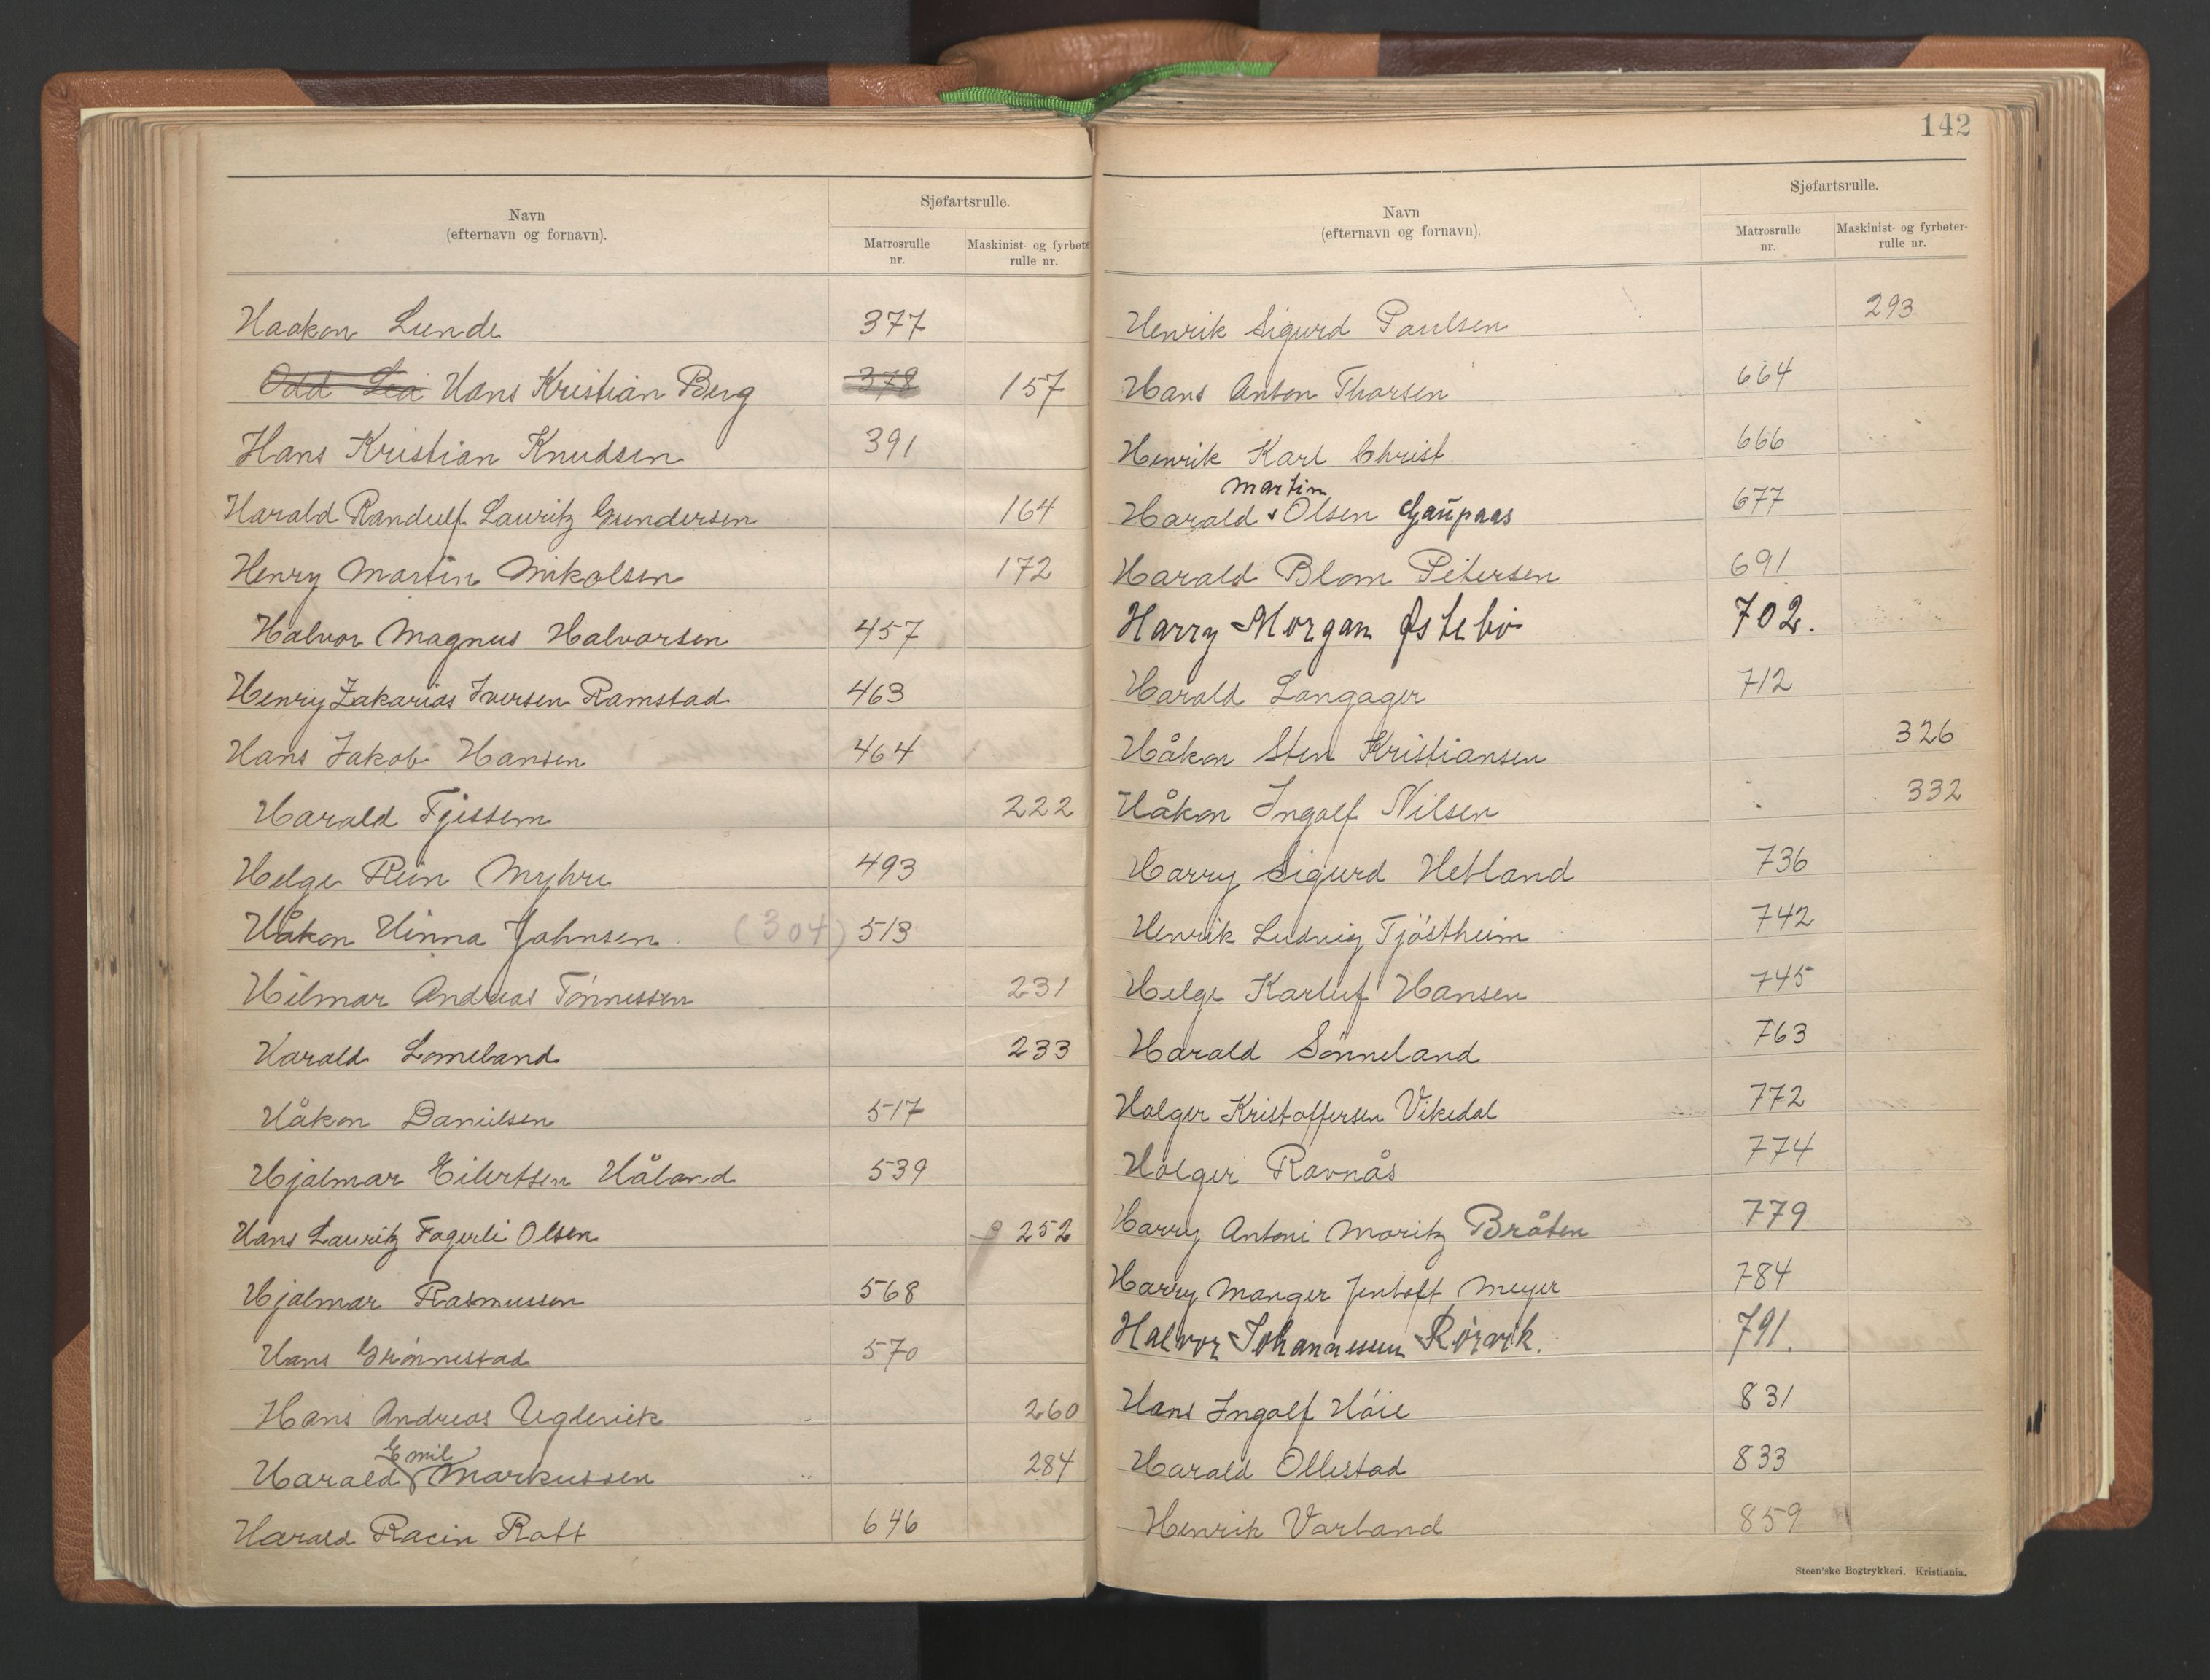 Navn
(efternavn og fornavn).
Sjøfartsrulle.
Matrosrulle nr.
Maskinist- og fyrbøte rulle nr.
Haakon Lunde 377
Odd Lea Hans Kristian Berg 378 157
Hans Kristian Knudsen 391
Harald Randulf Lauritz Gundersen 164
Henry Martin Mikalsen 172
Halvor Magnus Halvorsen 457
Henry Zakarias Iversen Ramstad 463
Hans Jakob Hansen 464
Harald Tjessem 222
Helge Rein Myhre 493
Håkon Hinna Johnsen (304) 513
Hilmar Andreas Tönnessen 231
Harald Lomeland 233
Håkon Danielsen 517
Hjalmar Eilertsen Håland 539
Hans Lauritz Fagerli Olsen 252
Hjalmar Rasmussen 568
Hans Grönnestad 570
Hans Andreas Uglevik 260
Emil
Harald Markussen 284
Harald Racin Rott 646
142
Navn
(efternavn og fornavn).
Sjøfartsrulle.
Matrosrulle nr.
Maskinist- og fyrbøter- rulle nr.
Henrik Sigurd Paulsen 293
Hans Anton Thorsen 664
Henrik Karl Christ 666
Martin
Harald Olsen Gaupaas 677
Harald Blom Petersen 691
Harry Morgan Østebø 702.
Harald Langager 712
Håkon Sten Kristiansen 326
Håkon Ingolf Nilsen 332
Harry Sigurd Hetland 736
Henrik Ludvig Tjöstheim 742
Helge Karluf Hansen 745
Harald Sönneland 763
Holger Kristoffersen Vikedal 772
Holger Ravnås 774
Harry Antoni Moritz Bråten 779
Harry Manger Jentoft Meyer 784
Halvor Johannessen Rørvik. 791.
Hans Ingolf Höie 831
Harald Ollestad 833
Henrik Varland 859
Steen'ske Bogtrykkeri, Kristiania.